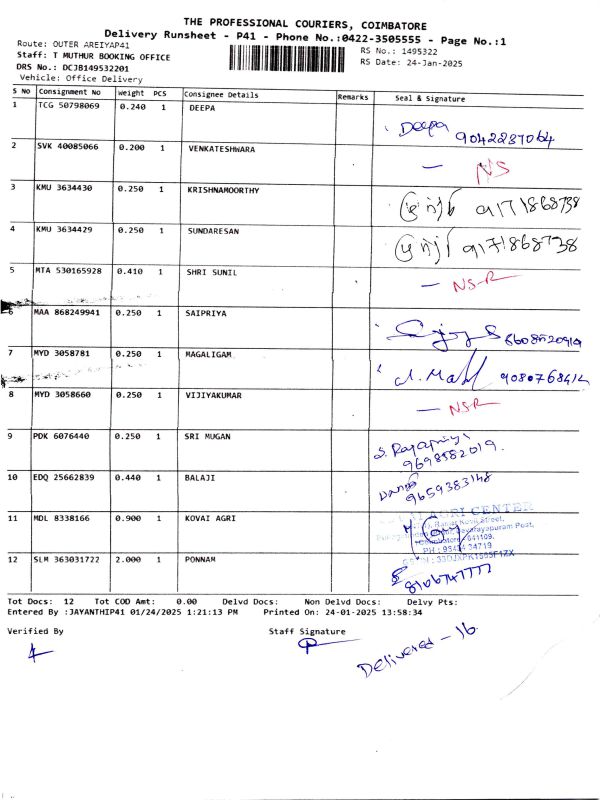 THE PROFESSIONAL COURIERS, COIMBATORE
Delivery Runsheet - P41 - Phone No.:0422-3505555 - Page No.:1
Route: OUTER AREIYAP41
Staff: T MUTHUR BOOKING OFFICE
DRS No.: DCJB149532201
Vehicle: Office Delivery
RS No.: 1495322
RS Date: 24-Jan-2025
S No Consignment No Weight PCS Consignee Details Remarks Seal & Signature
1 TCG 50798069 0.240 1 DEEPA Deepa 9042237064
2 SVK 40085066 0.200 1 VENKATESHWARA — NS
3 KMU 3634430 0.250 1 KRISHNAMOORTHY 9171868738
4 KMU 3634429 0.250 1 SUNDARESAN 9171868738
5 MTA 530165928 0.410 1 SHRI SUNIL — NS-R
6 MAA 868249941 0.250 1 SAIPRIYA
7 MYD 3058781 0.250 1 MAGALIGAM
8 MYD 3058660 0.250 1 VIJIYAKUMAR — NSR
9 PDK 6076440 0.250 1 SRI MUGAN 9698582019.
10 EDQ 25662839 0.440 1 BALAJI 9659383148
11 MDL 8338166 0.900 1 KOVAI AGRI AGRI CENTER
Kovil Street,
12 SLM 363031722 2.000 1 PONNAM 8106747777
Tot Docs: 12 Tot COD Amt: 0.00 Delvd Docs: Non Delvd Docs: Delvy Pts:
Entered By :JAYANTHIP41 01/24/2025 1:21:13 PM Printed On: 24-01-2025 13:58:34
Verified By Staff Signature
Delivered - 16